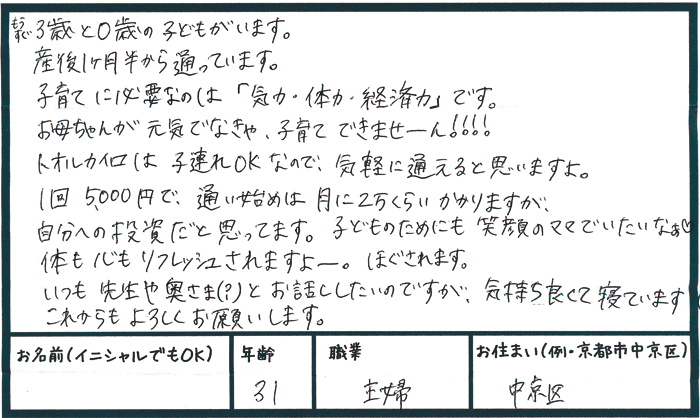 もうすぐ3歳と0歳の子どもがいます。
産後1ヶ月半から通っています。
子育てに必要なのは「気力・体力・経済力」です。
お母ちゃんが元気でなきゃ、子育てできませーん!!!!
トオルカイロは子連れOKなので、気軽に通えると思いますよ。
1回5,000円で、通い始めは月に2万くらいかかりますが、
自分への投資だと思ってます。子どものためにも笑顔のママでいたいなぁ♡
体も心もリフレッシュされますよー。ほぐされます。
いつも先生や奥さま(?)とお話ししたいのですが、気持ち良くて寝ています
これからもよろしくお願いします。
お名前(イニシャルでもOK) 年齢 職業 お住まい(例・京都市中京区)
31 主婦 中京区